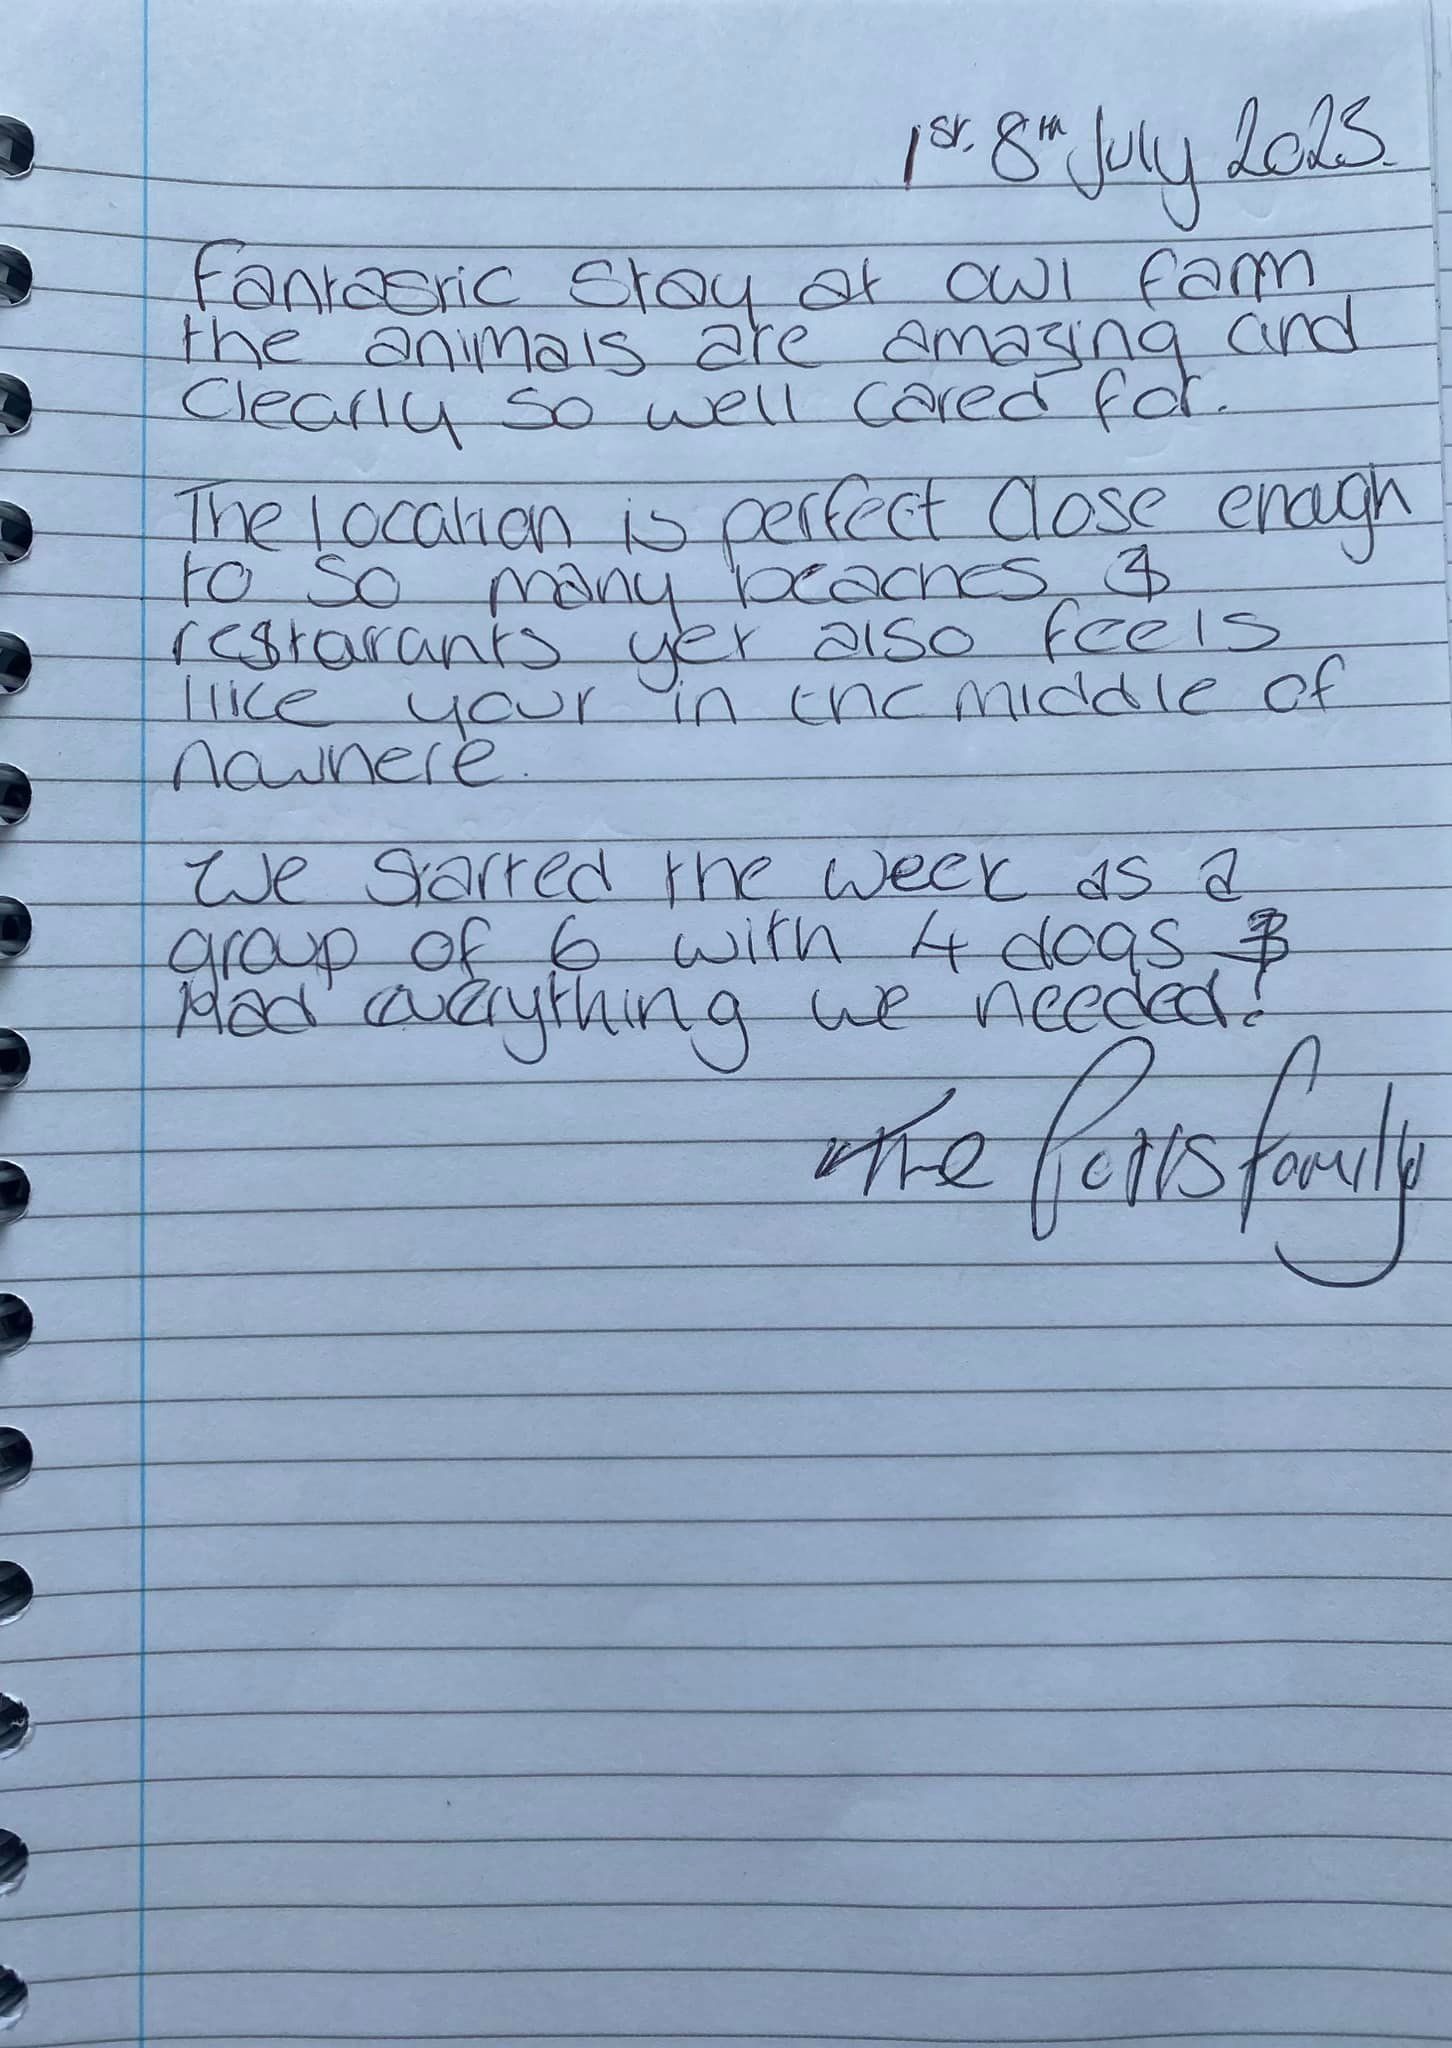 1st. 8th July 2023.
Fantastic stay at owl farm
the animals are amazing and
Clearly so well cared for.
The location is perfect Close enough
to so many beaches &
restaraunts yet also feels
like your in the middle of
nowhere.
We started the week as a
group of 6 with 4 dogs &
Had everything we needed!
The Potts family